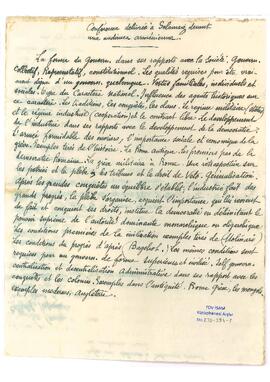 Conférence délivrée à Salamas devant
une audience arménienne
La forme du Gouvern. dans ses rapports avec la Société. Gouvern.
Collectif, Représentatif, constitutionnel. Les qualités requises pour être vrai-
ment digne d'un gouvern. quelconque. Vertus familiales, individuelles et
sociales. du Caractère National. Influence des agents historiques sur
ce caractère. les traditions, les conquêtes, les dans. le régime militaire
et le régime industriel (coopération) et le contrat libre. Le développement
de l'industrie dans ses rapports avec le développement de la démocratie:
l'armée formidable des ouvriers, l'importance sociale et économique de la
grève. Exemples tirés de l'histoire. La Rome antique, les premiers pas de la
démocratie romaine. La grève militaire à Rome. Une rétrospection sur
les patriciens et la plèbe, les tribuns et le droit de Veto. Généralisation:
après les grandes conquêtes un équilibre s'établit, l'industrie fait des
grands progrès, la plèbe s'organise, acquiert l'importance, qui lui revient
de fait et conquiert ses droits, institue la démocratie en délimitant le
pouvoir suprême de l'autorité dominante monarchique ou oligarchique
les conditions premières de la civilisation exemples tirés de (Molinari)
les conditions du progrès d'après (Bagehot). Les mêmes conditions sont
requises pour un gouvern. de forme supérieure et évoluée, self govern.
centralisation et décentralisation administrative dans ses rapports avec les
conquêtes et les colonies. Exemples dans l'antiquité. Rome Grèce, les
exemples modernes, Angleterre.
TDV İSAM
Kütüphanesi Arşivi